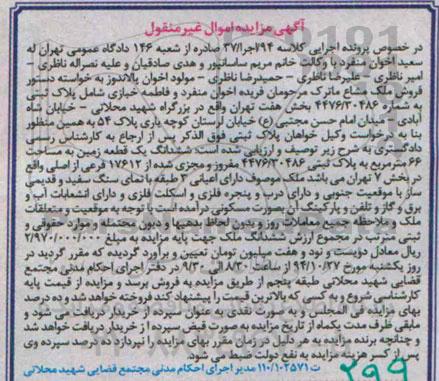 آگهی مزایده اموال غیرمنقول
در خصوص پرونده اجرایی کلاسه ۳۷اجرا/۷۹۴ صادره از شعبه ۱۴۶ دادگاه عمومی تهران له
سعید اخوان منفرد با وکالت خانم مریم ساسانپور و هدی صادقیان و علیه نصراله ناظری –
امیر ناظری – علیرضا ناظری – حمیدرضا ناظری – مولود اخوان پالاندوز به خواسته دستور
فروش ملک مشاع ماترک مرحومان فریده اخوان منفرد و فاطمه خبازی شامل پلاک ثبتی
به شماره ۴۴۷۶/۳۰۴۸۶ بخش هفت تهران واقع در بزرگراه شهید محلاتی – خیابان شاه
آبادی – میدان امام حسن مجتبی (ع) خیابان ارستان کوچه یاری پلاک ۵۴ به همین منظور
بنا به درخواست وکیل خواهان پلاک ثبتی فوق الذکر پس از ارجاع به کارشناس رسمی
دادگستری به شرح زیر توصیف و ارزیابی شده است: ششدانگ یک قطعه زمین به مساحت
۶۶ مترمربع به پلاک ثبتی ۴۴۷۶/۳۰۴۸۶ مفروز و مجزی شده از ۱۷۶۱۲ فرعی از اصلی واقع
در بخش ۷ تهران می باشد ملک موصوف دارای اعیانی ۲ طبقه با نمای سنگ سفید و قدیمی
ساز با موقعیت جنوبی و دارای درب و پنجره فلزی و اسکلت فلزی و دارای انشعابات آب و
برق و گاز و تلفن و پارکینگ آن بصورت مسکونی درآمده است با توجه به موقعیت و متعلقات
ملک و ملاحظه جمیع معاملات روز و بدون لحاظ بدهیها و دیون محتمله و موارد حقوقی و
ثبتی مترتب در مجموع ارزش ششدانگ ملک جهت پایه مزایده به مبلغ ۲/۹۷۰/۰۰۰/۰۰۰
ریال معادل دویست و نود و هفت میلیون تومان تعیین و برآورد گردیده که مقرر گردید در
روز یکشنبه مورخ ۹۴/۱۰/۲۷ از ساعت ۸/۳۰ الی ۹/۳۰ در دفتر اجرای احکام مدنی مجتمع
قضایی شهید محلاتی طبقه پنجم از طریق مزایده به فروش برسد و مزایده از قیمت پایه
کارشناسی شروع و به کسی که بالاترین قیمت را پیشنهاد کند فروخته خواهد شد و ده درصد
بهای مزایده فی المجلس و به صورت نقدی به عنوان سپرده از خریدار دریافت می شود و
مابقی ظرف مدت یکماه از تاریخ مزایده به صورت قبض سپرده از خریدار دریافت خواهد شد
و چنانچه برنده مزایده به هر دلیل در زمان مقرر بهای مزایده را نپردازد ده درصد سپرده وی
پس از کسر هزینه مزایده به نفع دولت ضبط می شود.
ت ۱۱۰/۱۰۲۵۷۱ مدیر اجرای احکام مدنی مجتمع قضایی شهید محلاتی
۲۹۹